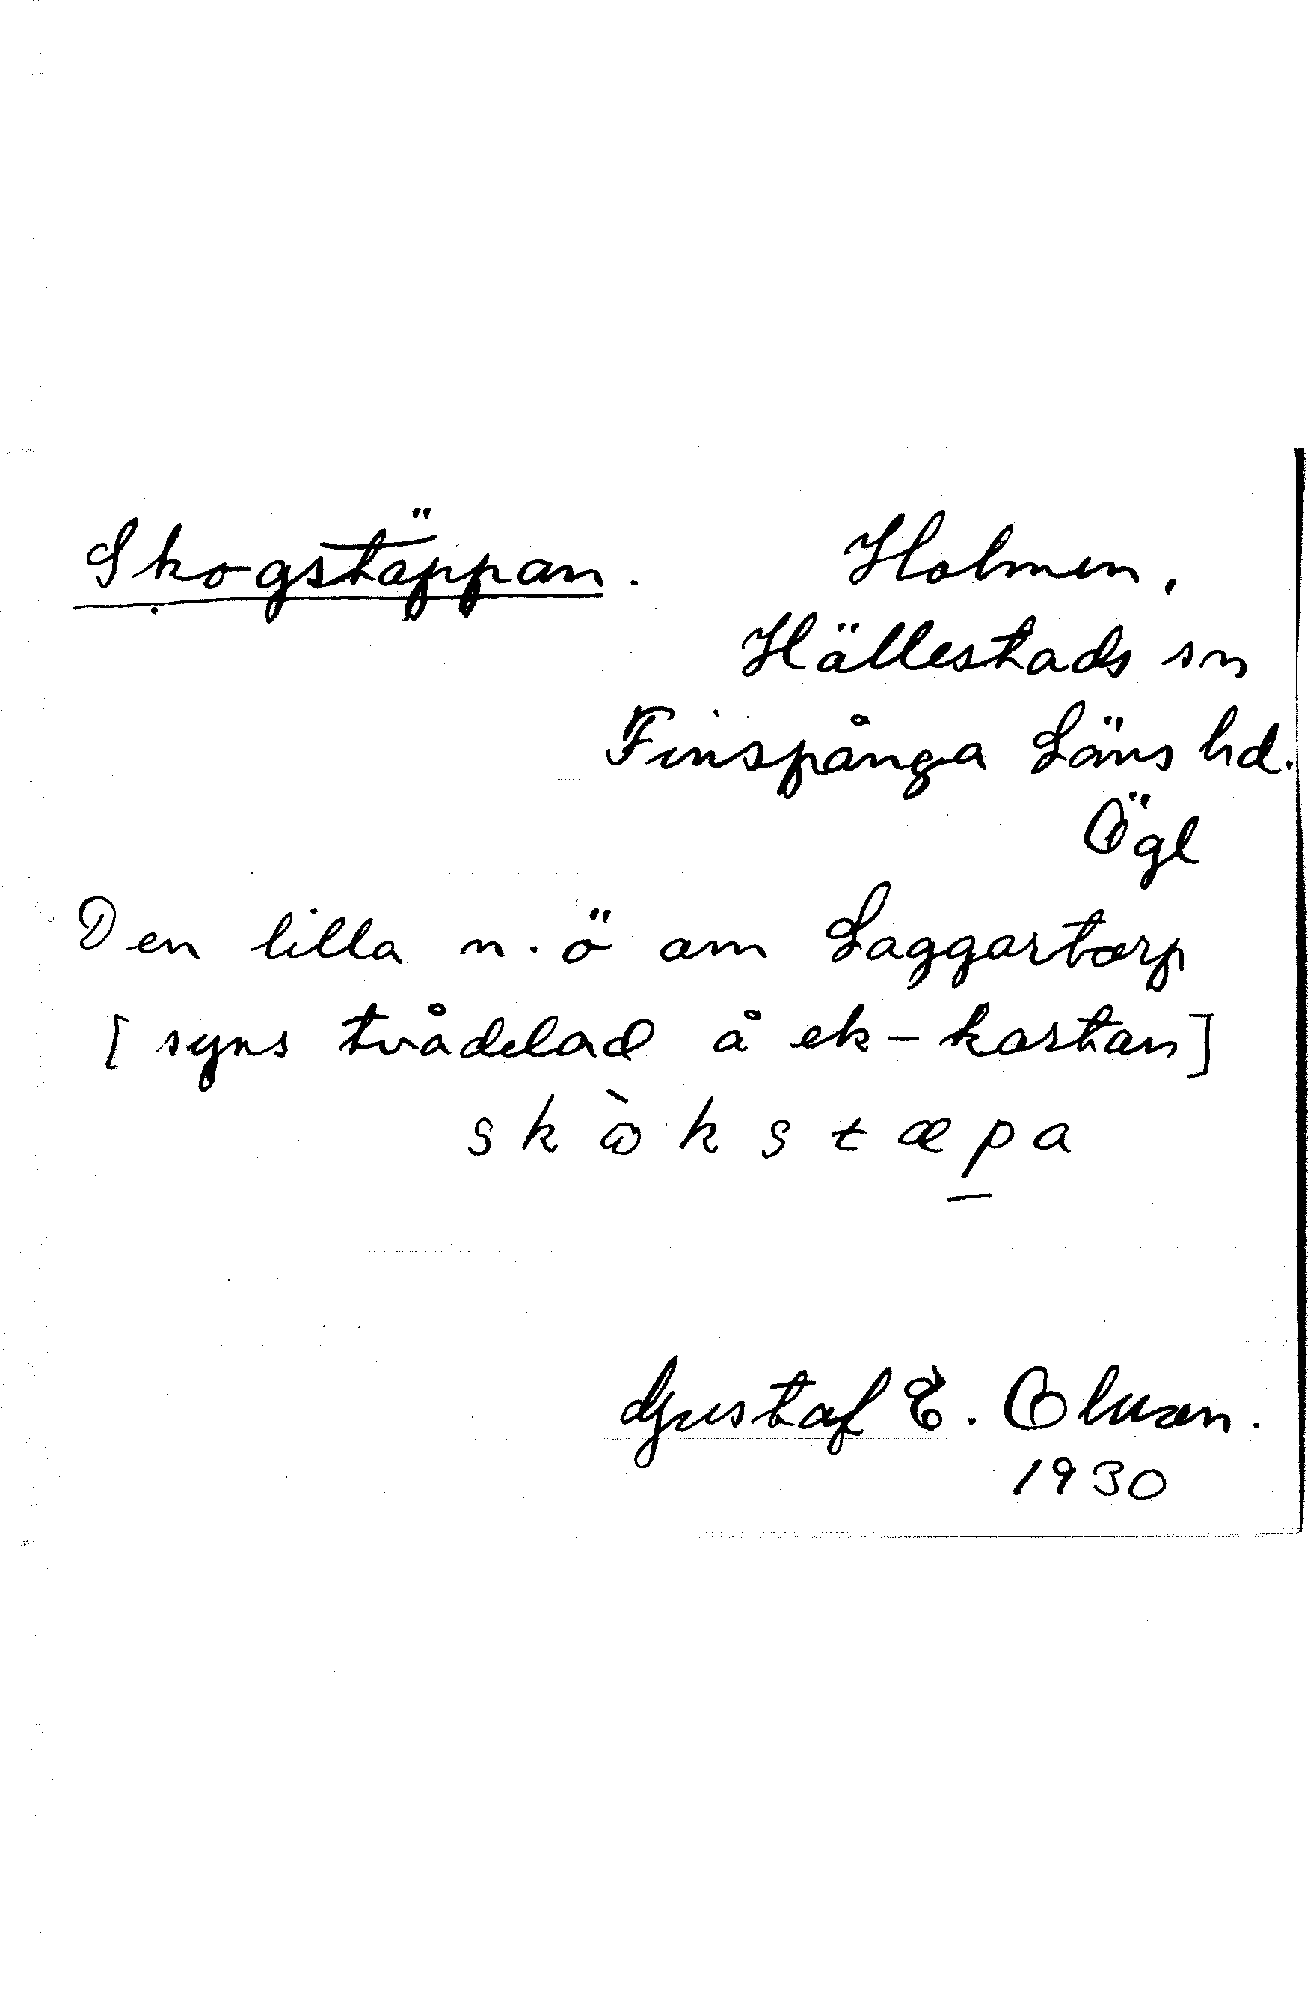 Skogstäppan. Holmen,
Hällestads sn
Finspånga Läns hd.
Ögl
Den lilla n.ö om Laggartorp
[syns tvådelad å ek-kartan]
skὼkstæpa
Gustaf E.
1930